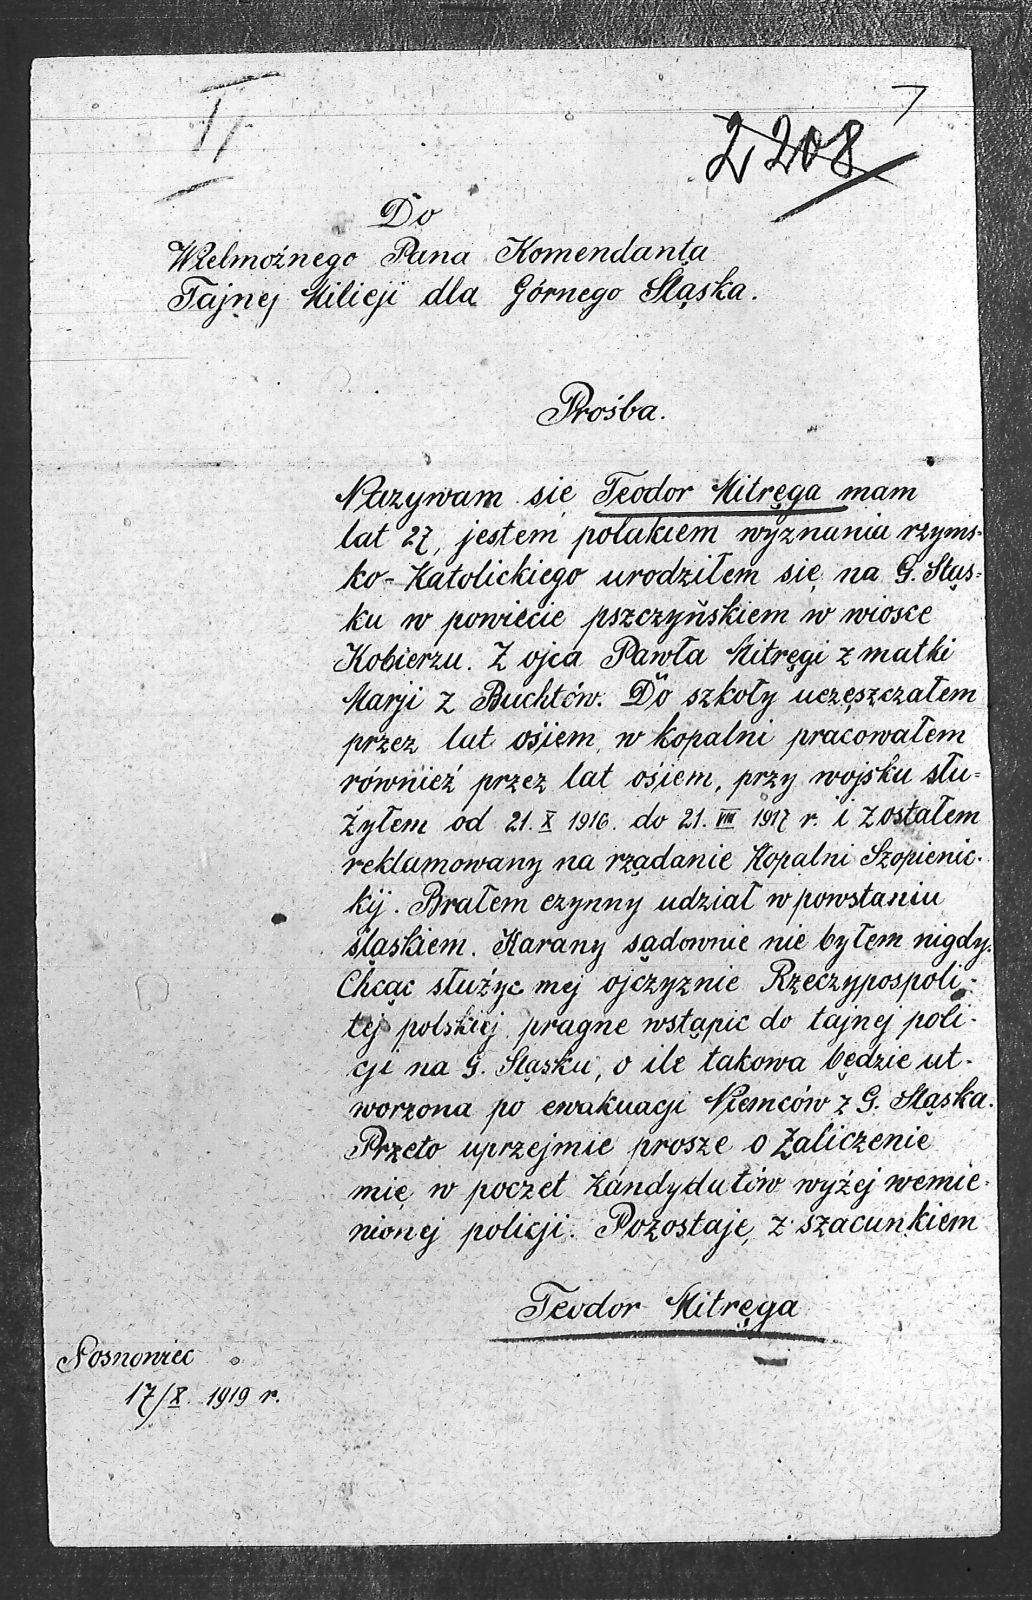 7
2208
Do
Wielmożnego Pana Komendanta
Tajnej Milicji dla Górnego Śląska.
Prośba.
Nazywam się Teodor Mitręga mam
lat 27, jestem polakiem wyznania rzyms-
ko-Katolickiego urodziłem się na G. Śląs-
ku w powiecie pszczyńskiem w wiosce
Kobierzu. Z ojca Pawła Mitręgi z matki
Marji z Buchtów. Do szkoły uczęszczałem
przez lat ośiem, w kopalni pracowałem
również przez lat ośiem, przy wojsku słu-
żyłem od 21. X 1916. do 21. VIII 1917 r. i zostałem
reklamowany na rządanie Kopalni Szopienic-
kij. Brałem czynny udział w powstaniu
śląskiem. Karany sądownie nie byłem nigdy.
Chcąc służyc mej ojczyznie Rzeczypospoli-
tej polskiej pragne wstąpic do tajnej poli-
cji na G. Sląsku, o ile takowa będzie ut-
worzona po ewakuacji Niemców z G. Sląska.
Przeto uprzejmie prosze o zaliczenie
mię w poczet kandydatów wyżej wemie-
nionej policji. Pozostaję z szacunkiem
Teodor Mitręga
Sosnowiec
17/X. 1919 r.